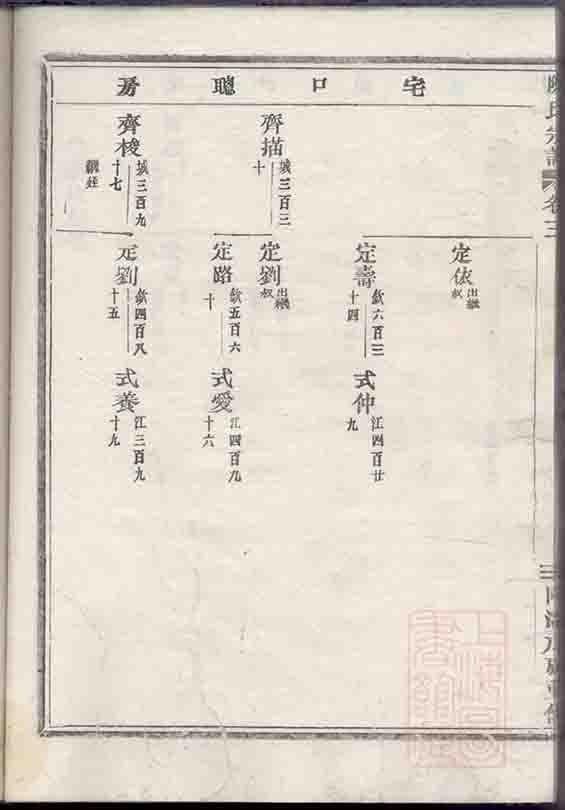 宅口聰房
定依
出繼
叔
定壽
欽六百三
十四
式仲
江四百廿
九
齊描
城三百三
十
定劉
出繼
叔
定路
欽五百六
十
式愛
江四百九
十六
齊梭
城三百九
十七
繼姪
定劉
欽四百八
十五
式養
江三百九
十九
氏宗譜
卷三
上海圖書館藏